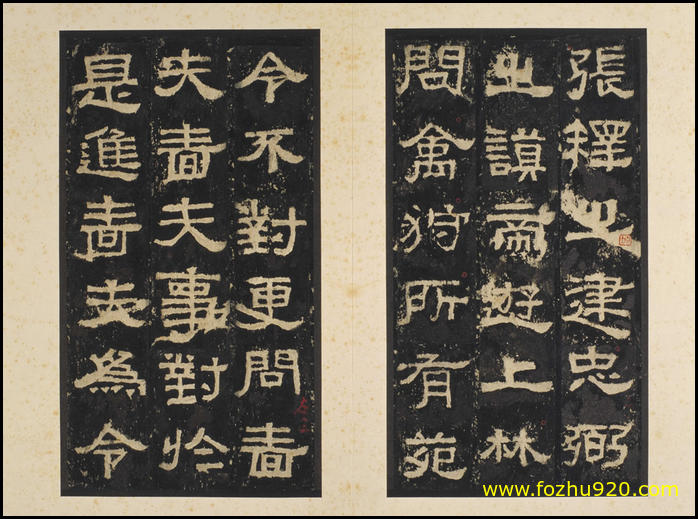 張釋之建忠弼
之謨帝遊上林
問禽狩所有苑
令不對更問嗇
夫嗇夫事對於
是進嗇夫為令
www.fozhu920.com